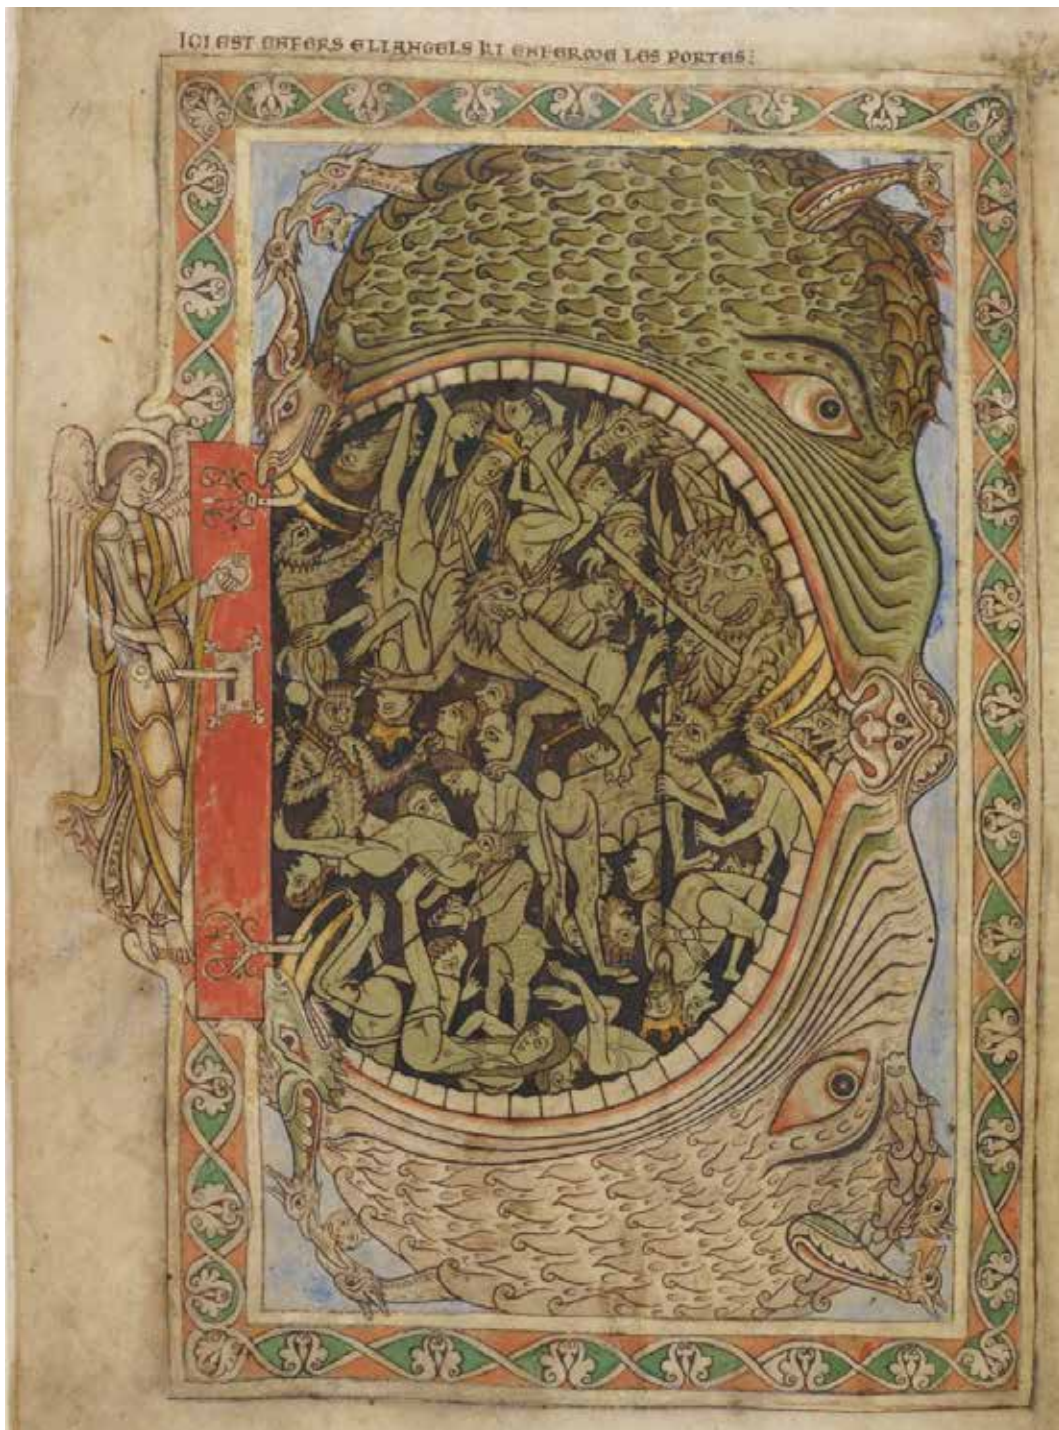 ICI EST ENFERS E LI ANGELS KI ENFERME LES PORTES: